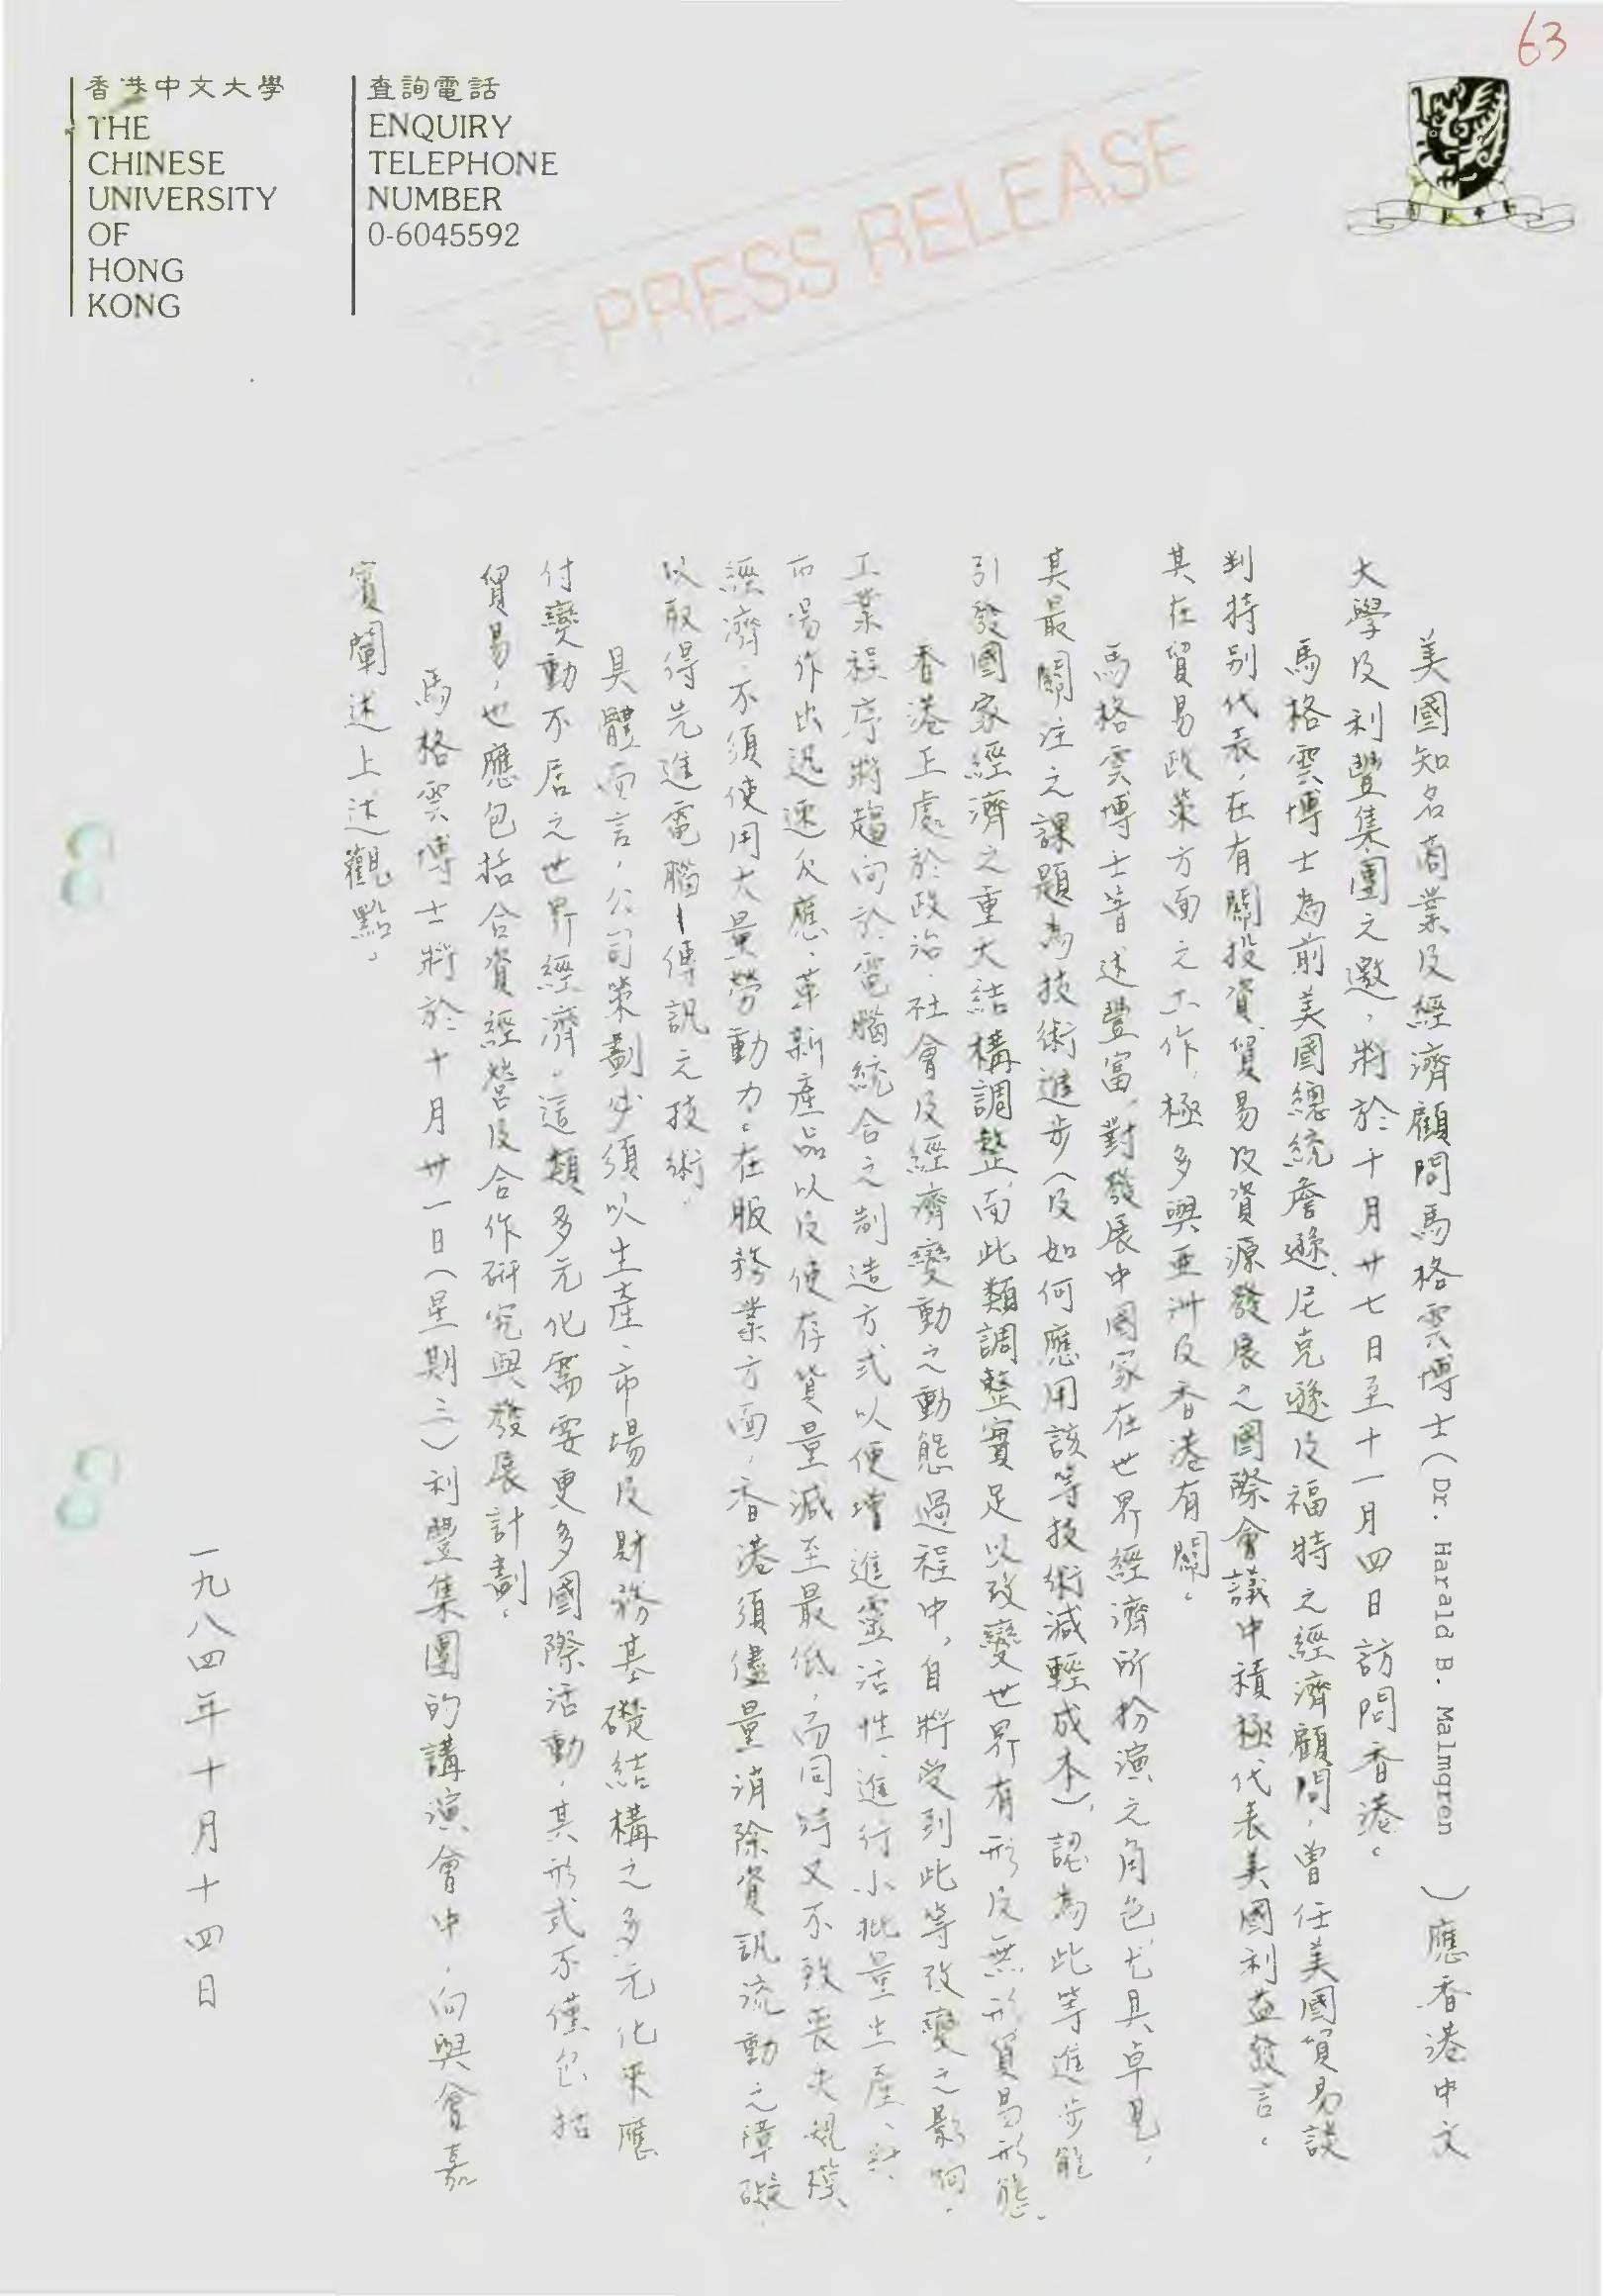 63
香港中文大學
THE
CHINESE
UNIVERSITY
OF
HONG
KONG
查詢電話
ENQUIRY
TELEPHONE
NUMBER
0-6045592
PRESS RELEASE
美國知名商業及經濟顧問馬格雲博士(Dr. Harald B. Malmgren)應香港中文
大學及利豐集團之邀,將於十月廿七日至十一月四日訪問香港。
馬格雲博士為前美國總統詹遜、尼克遜及福特之經濟顧問,曾任美國貿易談
判特別代表,在有關投資、貿易及資源發展之國際會議中積極代表美國利益發言。
其在貿易政策方面之工作,極多與亞洲及香港有關。
馬格雲博士著述豐富,對發展中國家在世界經濟所扮演之角色尤具卓見,
其最關注之課題為技術進步(及如何應用該等技術減輕成本),認為此等進步能
引發國家經濟之重大結構調整,而此類調整實足以改變世界有形及無形貿易形態。
香港正處於政治、社會及經濟變動之動態過程中,自將受到此等改變之影响。
工業程序將趨向於電腦統合之制造方式以便增進靈活性、進行小批量生產、對
市場作出迅速反應、革新產品以及使存貨量減至最低,而同時又不致喪失規模
經濟,不須使用大量勞動力。在服務業方面,香港須儘量消除資訊流動之障礙,
以取得先進電腦-傳訊之技術。
具體而言,公司策劃必須以生產、市場及財務基礎結構之多元化來應
付變動不居之世界經濟。這類多元化需要更多國際活動,其形式不僅包括
貿易,也應包括合資經營及合作研究與發展計劃。
馬格雲博士將於十月卅一日(星期三)利豐集團的講演會中,向與會嘉
賓闡述上述觀點。
一九八四年十月十四日